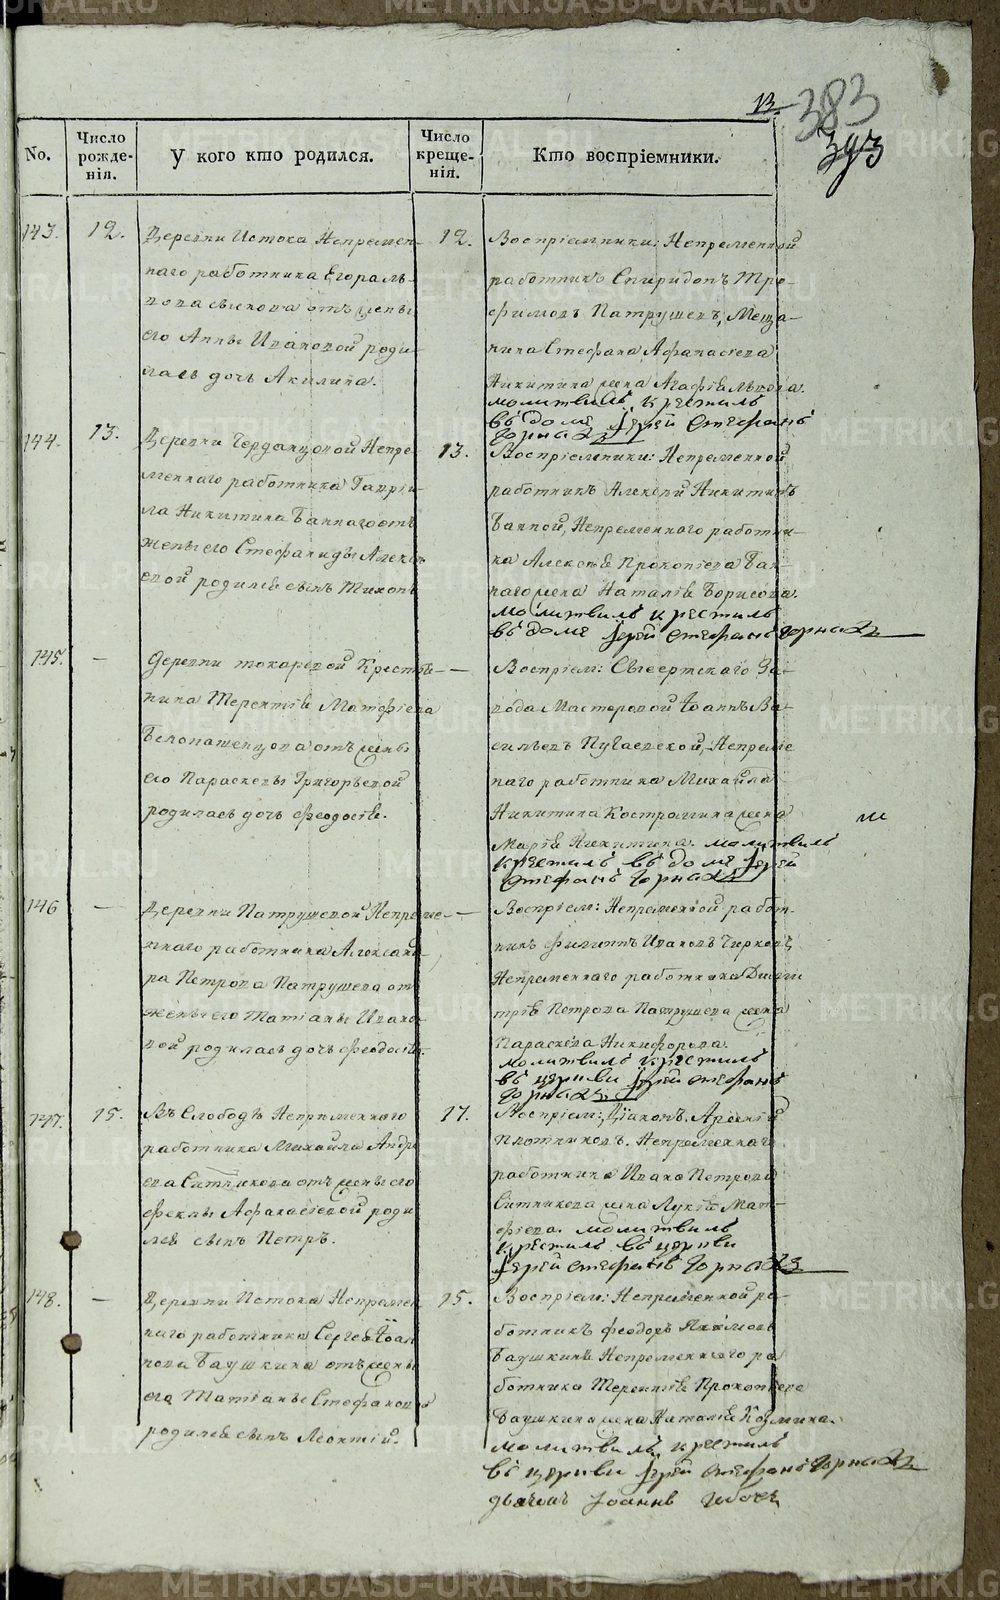 13.
383
393
No.
Число рожде-нія.
У кого кто родился.
Число креще-нія.
Кто воспріемники.
143.
12.
Деревни Истока Непремен-
наго работника Егора Ль-
вова сынова отъ жены
его Анны Ивановой роди-
лась дочь Акилина.
12.
Воспріемники: Непременной
работникъ Спиридонъ Тро-
фимовъ Патрушевъ, Меща-
нина Стефана Афанасіева
Никитина жена Агафія Львова.
молитвилъ, крестилъ
въ доме Іерей Стефанъ
Горныхъ
144.
13.
Деревни Черданцовой Непре-
меннаго работника Гаврі-
ла Никитина Баннаго отъ
жены его Стефаниды Алексе-
евой родился сынъ Тихонъ
13.
Воспріемники: Непременной
работникъ Алексей Никитинъ
Банной, Непременнаго работни-
ка Алексея Прокопіева Бан-
наго жена Наталія Борисова.
молитвилъ крестилъ
въ доме Іерей Стефанъ Горныхъ
145.
—
Деревни токаревой Крестья-
нина Терентія Матфіева
Белопашенцова отъ жены
его Параскевы Григорьевой
родилась дочь Феодосія.
—
Воспріем: Сысертскаго За-
вода Мастеровой Іоаннъ Ва-
сильевъ Пугаевской, Непреме
наго работника Михайла
Никитина Костромина жена
Марія Никитина. молитвилъ
крестилъ въ доме Іерей
Стефанъ Горныхъ
146
—
Деревни Патрушевой Непреме-
ннаго работника Александ-
ра Петрова Патрушева отъ
жены его Татіаны Ивано-
вой родилась дочь Феодосія.
—
Воспріем: Непременной работ-
никъ Филиппъ Ивановъ Чирковъ,
Непременнаго работника Дими
трія Петрова Патрушева жена
Параскева Никифорова.
молитвилъ крестилъ
въ церкви Іерей Стефанъ
Горныхъ
147.
15.
Въ Слободе Непременнаго
работника Михайла Андре
ева Ситникова отъ жены его
Феклы Афанасіевой роди
лся сынъ Петръ.
17.
Воспріем: Діаконъ Арсеній
Плотниковъ. Непременнаго
работника Ивана Петрова
Ситникова жена Лукія Мат-
фіева. молитвилъ
крестилъ въ церкви
Іерей Стефанъ Горныхъ
148.
—
Деревни Истока Непремен
наго работника Сергея Іоан
нова Баушкина отъ жены
его Татіаны Стефановой
родился сынъ Леонтій.
15.
Воспріем: Непременной ра-
ботникъ Феодоръ Якимовъ
Баушкинъ Непременнаго ра
ботника Терентія Прокопьева
Баушкина жена Наталія Козмина.
молитвилъ, крестилъ
въ церкви Іерей Стефанъ Горныхъ
дьячокъ Іоаннъ